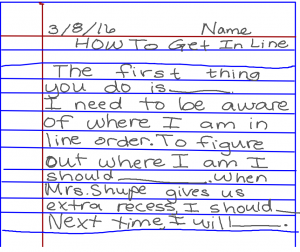 3/8/16 Name
How To Get In Line
The first thing
you do is______.
I need to be aware
of where I am in
line order. To figure
out where I am I
should__________. When
Mrs. Shupe gives us
extra recess, I should____
Next time, I will______.